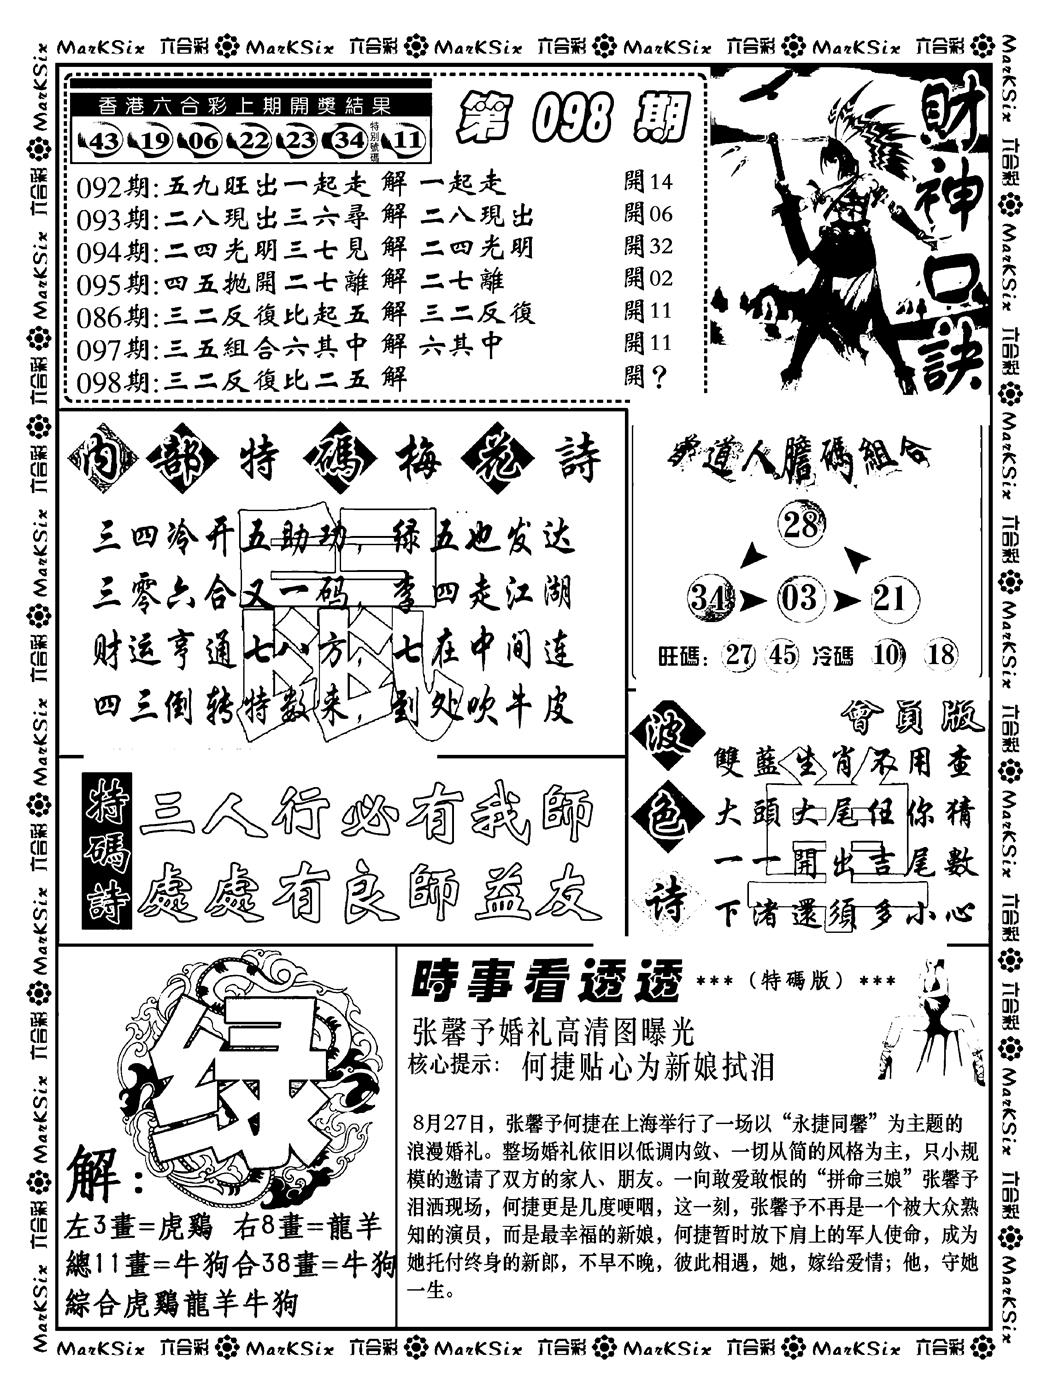 MarKSix 六合彩 MarKSix 六合彩 MarKSix 六合彩 MarKSix 六合彩 MarKSix 六合彩
香港六合彩上期開獎結果
43 19 06 22 23 34 特別號碼 11
第 098 期
財神口訣
092期:五九旺出一起走 解 一起走 開14
093期:二八現出三六尋 解 二八現出 開06
094期:二四光明三七見 解 二四光明 開32
095期:四五拋開二七離 解 二七離 開02
086期:三二反復比起五 解 三二反復 開11
097期:三五組合六其中 解 六其中 開11
098期:三二反復比二五 解 開?
內部特碼梅花詩
三四冷开五助功，绿五也发达
三零六合又一码，李四走江湖
财运亨通七八方，七在中间连
四三倒转特数来，到处吹牛皮
道人膽碼組合
28
34 03 21
旺碼: 27 45 冷碼 10 18
特碼詩
三人行必有我師
處處有良師益友
波色诗
會員版
雙藍生肖不用查
大頭大尾任你猜
一一開出吉尾數
下渚還須多小心
绿
解:
左3畫=虎鷄 右8畫=龍羊
總11畫=牛狗合38畫=牛狗
綜合虎鷄龍羊牛狗
時事看透透 ***（特碼版）***
张馨予婚礼高清图曝光
核心提示: 何捷贴心为新娘拭泪
8月27日，张馨予何捷在上海举行了一场以“永捷同馨”为主题的
浪漫婚礼。整场婚礼依旧以低调内敛、一切从简的风格为主，只小规
模的邀请了双方的家人、朋友。一向敢爱敢恨的“拼命三娘”张馨予
泪洒现场，何捷更是几度哽咽，这一刻，张馨予不再是一个被大众熟
知的演员，而是最幸福的新娘，何捷暂时放下肩上的军人使命，成为
她托付终身的新郎，不早不晚，彼此相遇，她，嫁给爱情；他，守她
一生。
MarKSix 六合彩 MarKSix 六合彩 MarKSix 六合彩 MarKSix 六合彩 MarKSix 六合彩